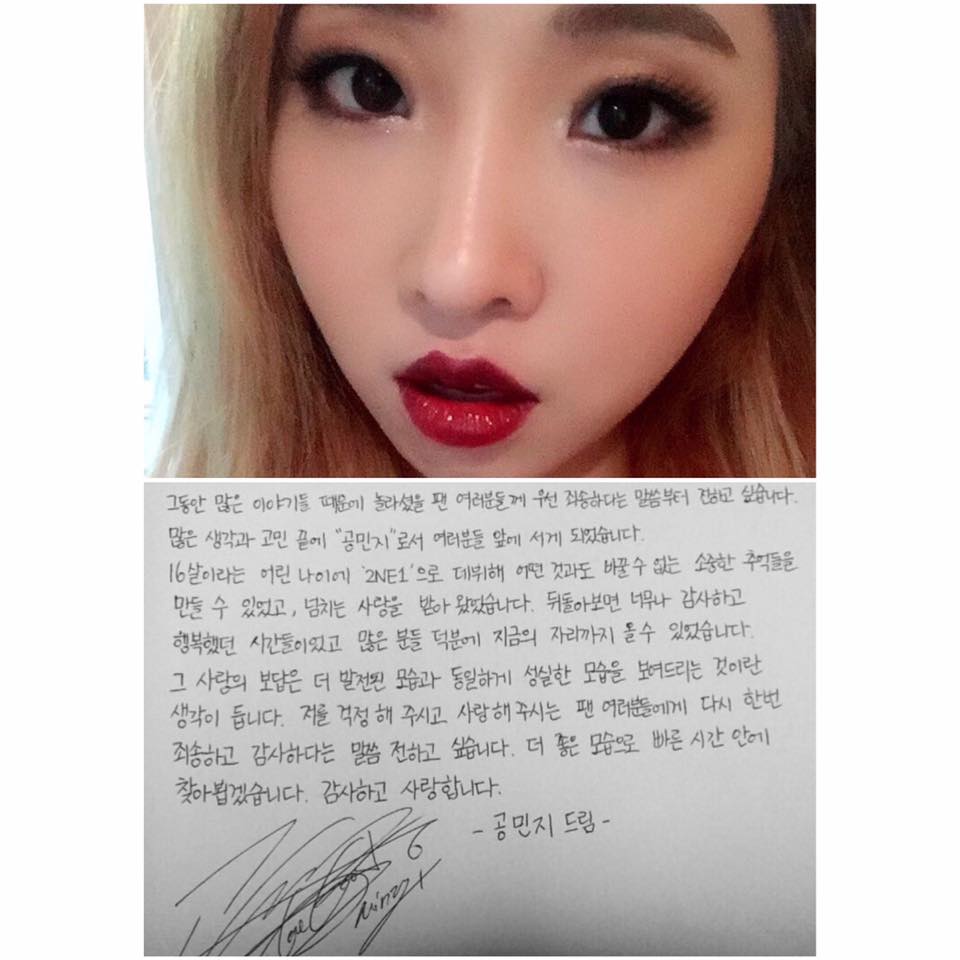 그동안 많은 이야기들 때문에 놀라셨을 팬 여러분들께 우선 죄송하다는 말씀부터 전하고 싶습니다.
많은 생각과 고민 끝에 "공민지"로서 여러분들 앞에 서게 되었습니다.
16살이라는 어린 나이에 '2NE1'으로 데뷔해 어떤 것과도 바꿀 수 없는 소중한 추억들을
만들 수 있었고, 넘치는 사랑을 받아 왔었습니다. 뒤돌아보면 너무나 감사하고
행복했던 시간들이었고 많은 분들 덕분에 지금의 자리까지 올 수 있었습니다.
그 사랑의 보답은 더 발전된 모습과 동일하게 성실한 모습을 보여드리는 것이란
생각이 듭니다. 저를 걱정 해 주시고 사랑해 주시는 팬 여러분들에게 다시 한번
죄송하고 감사하다는 말씀 전하고 싶습니다. 더 좋은 모습으로 빠른 시간 안에
찾아뵙겠습니다. 감사하고 사랑합니다.
- 공민지 드림 -
Minzy